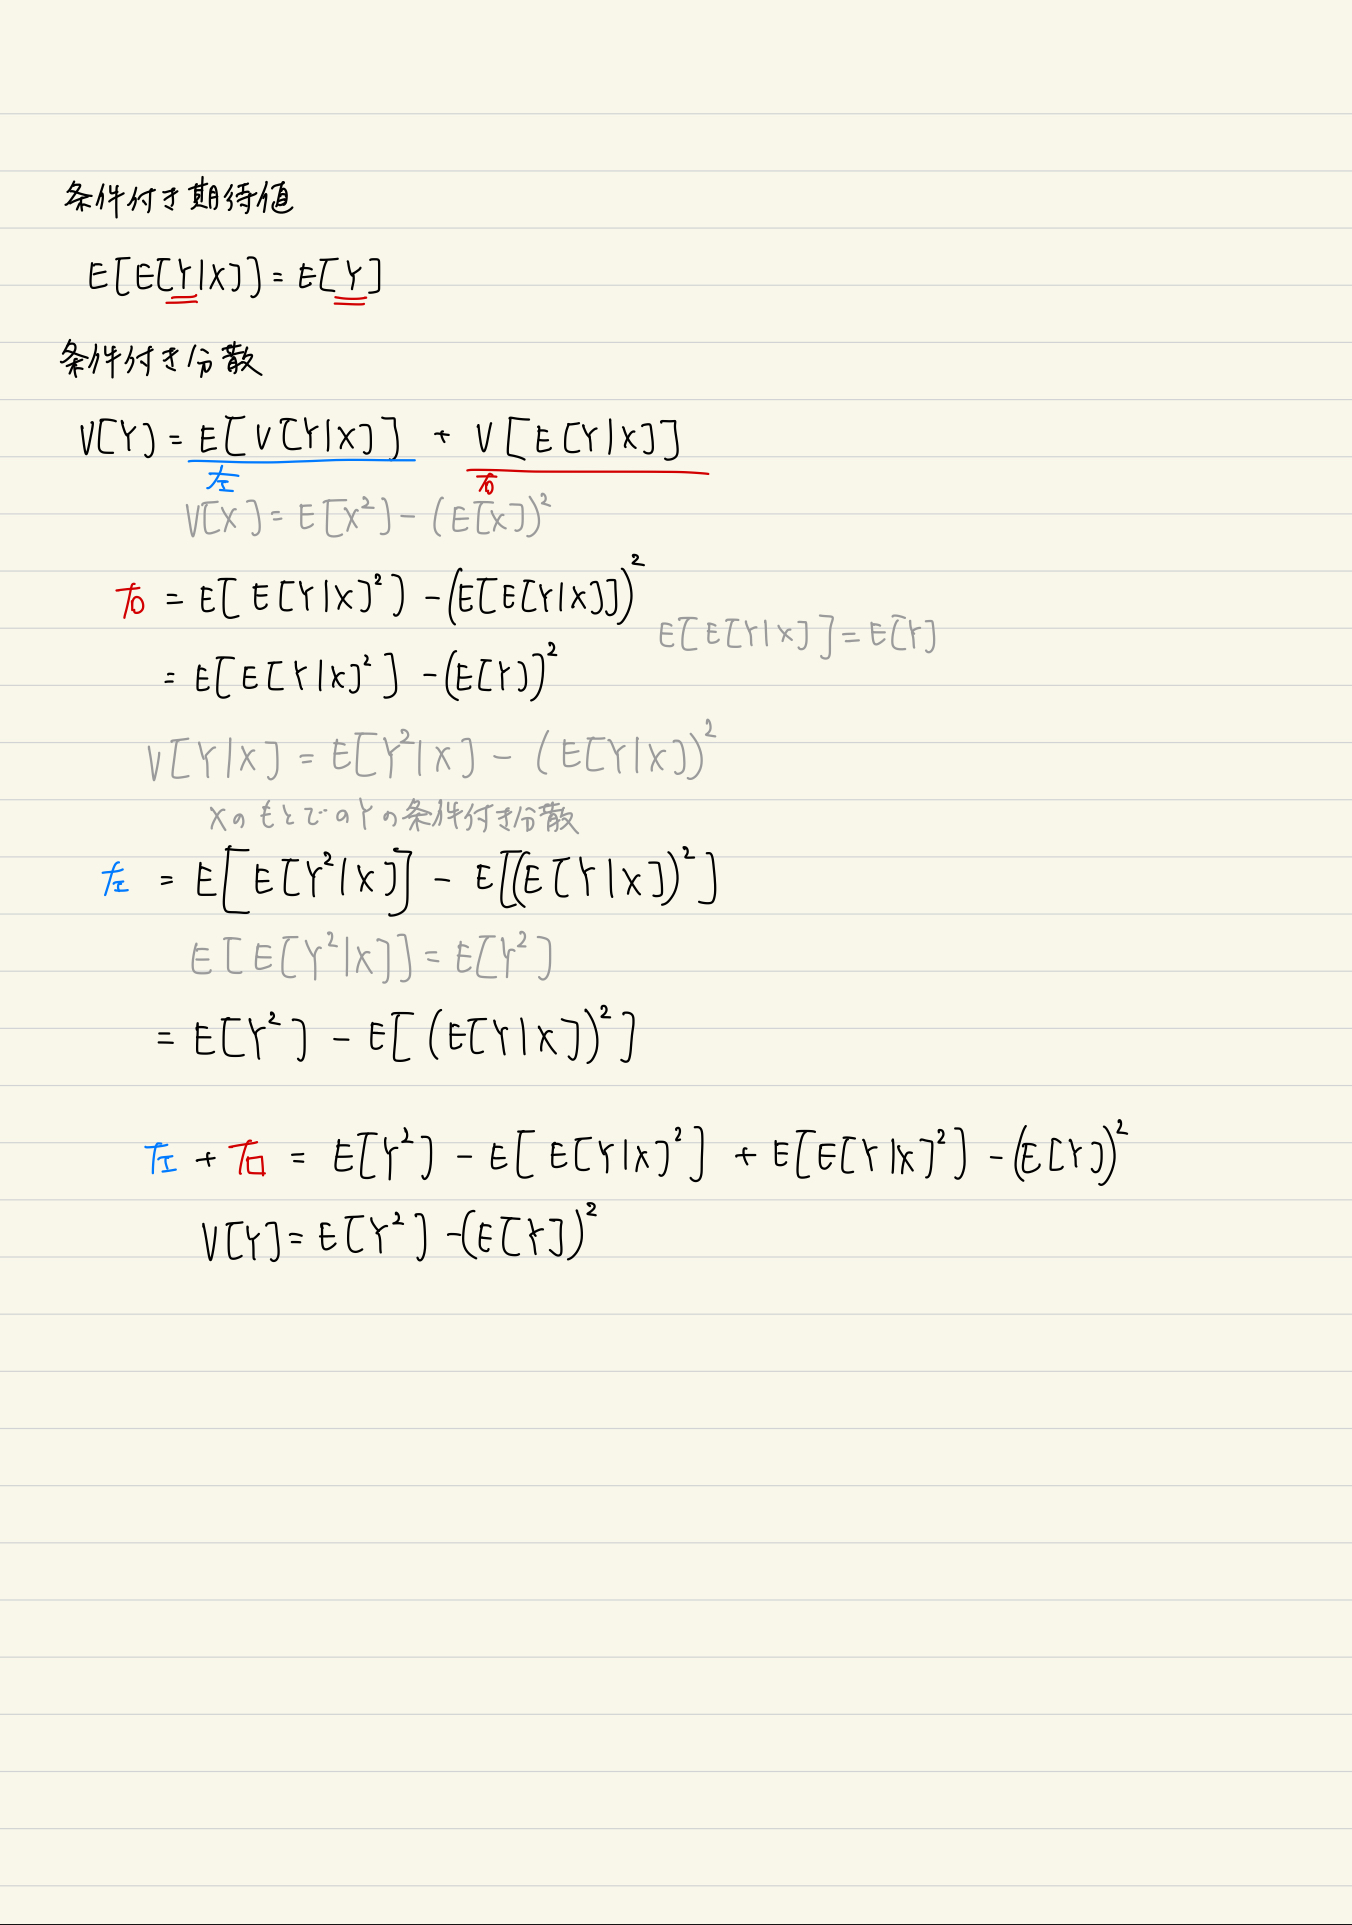 条件付き期待値
E[E[Y|X]] = E[Y]
条件付き分散
V[Y] = E[V[Y|X]] + V[E[Y|X]]
左 右
V[X] = E[X²] - (E[X])²
右 = E[E[Y|X]²] - (E[E[Y|X]])²
E[E[Y|X]] = E[Y]
= E[E[Y|X]²] - (E[Y])²
V[Y|X] = E[Y²|X] - (E[Y|X])²
Xのもとでの Yの条件付き分散
左 = E[E[Y²|X]] - E[(E[Y|X])²]
E[E[Y²|X]] = E[Y²]
= E[Y²] - E[(E[Y|X])²]
左 + 右 = E[Y²] - E[E[Y|X]²] + E[E[Y|X]²] - (E[Y])²
V[Y] = E[Y²] - (E[Y])²